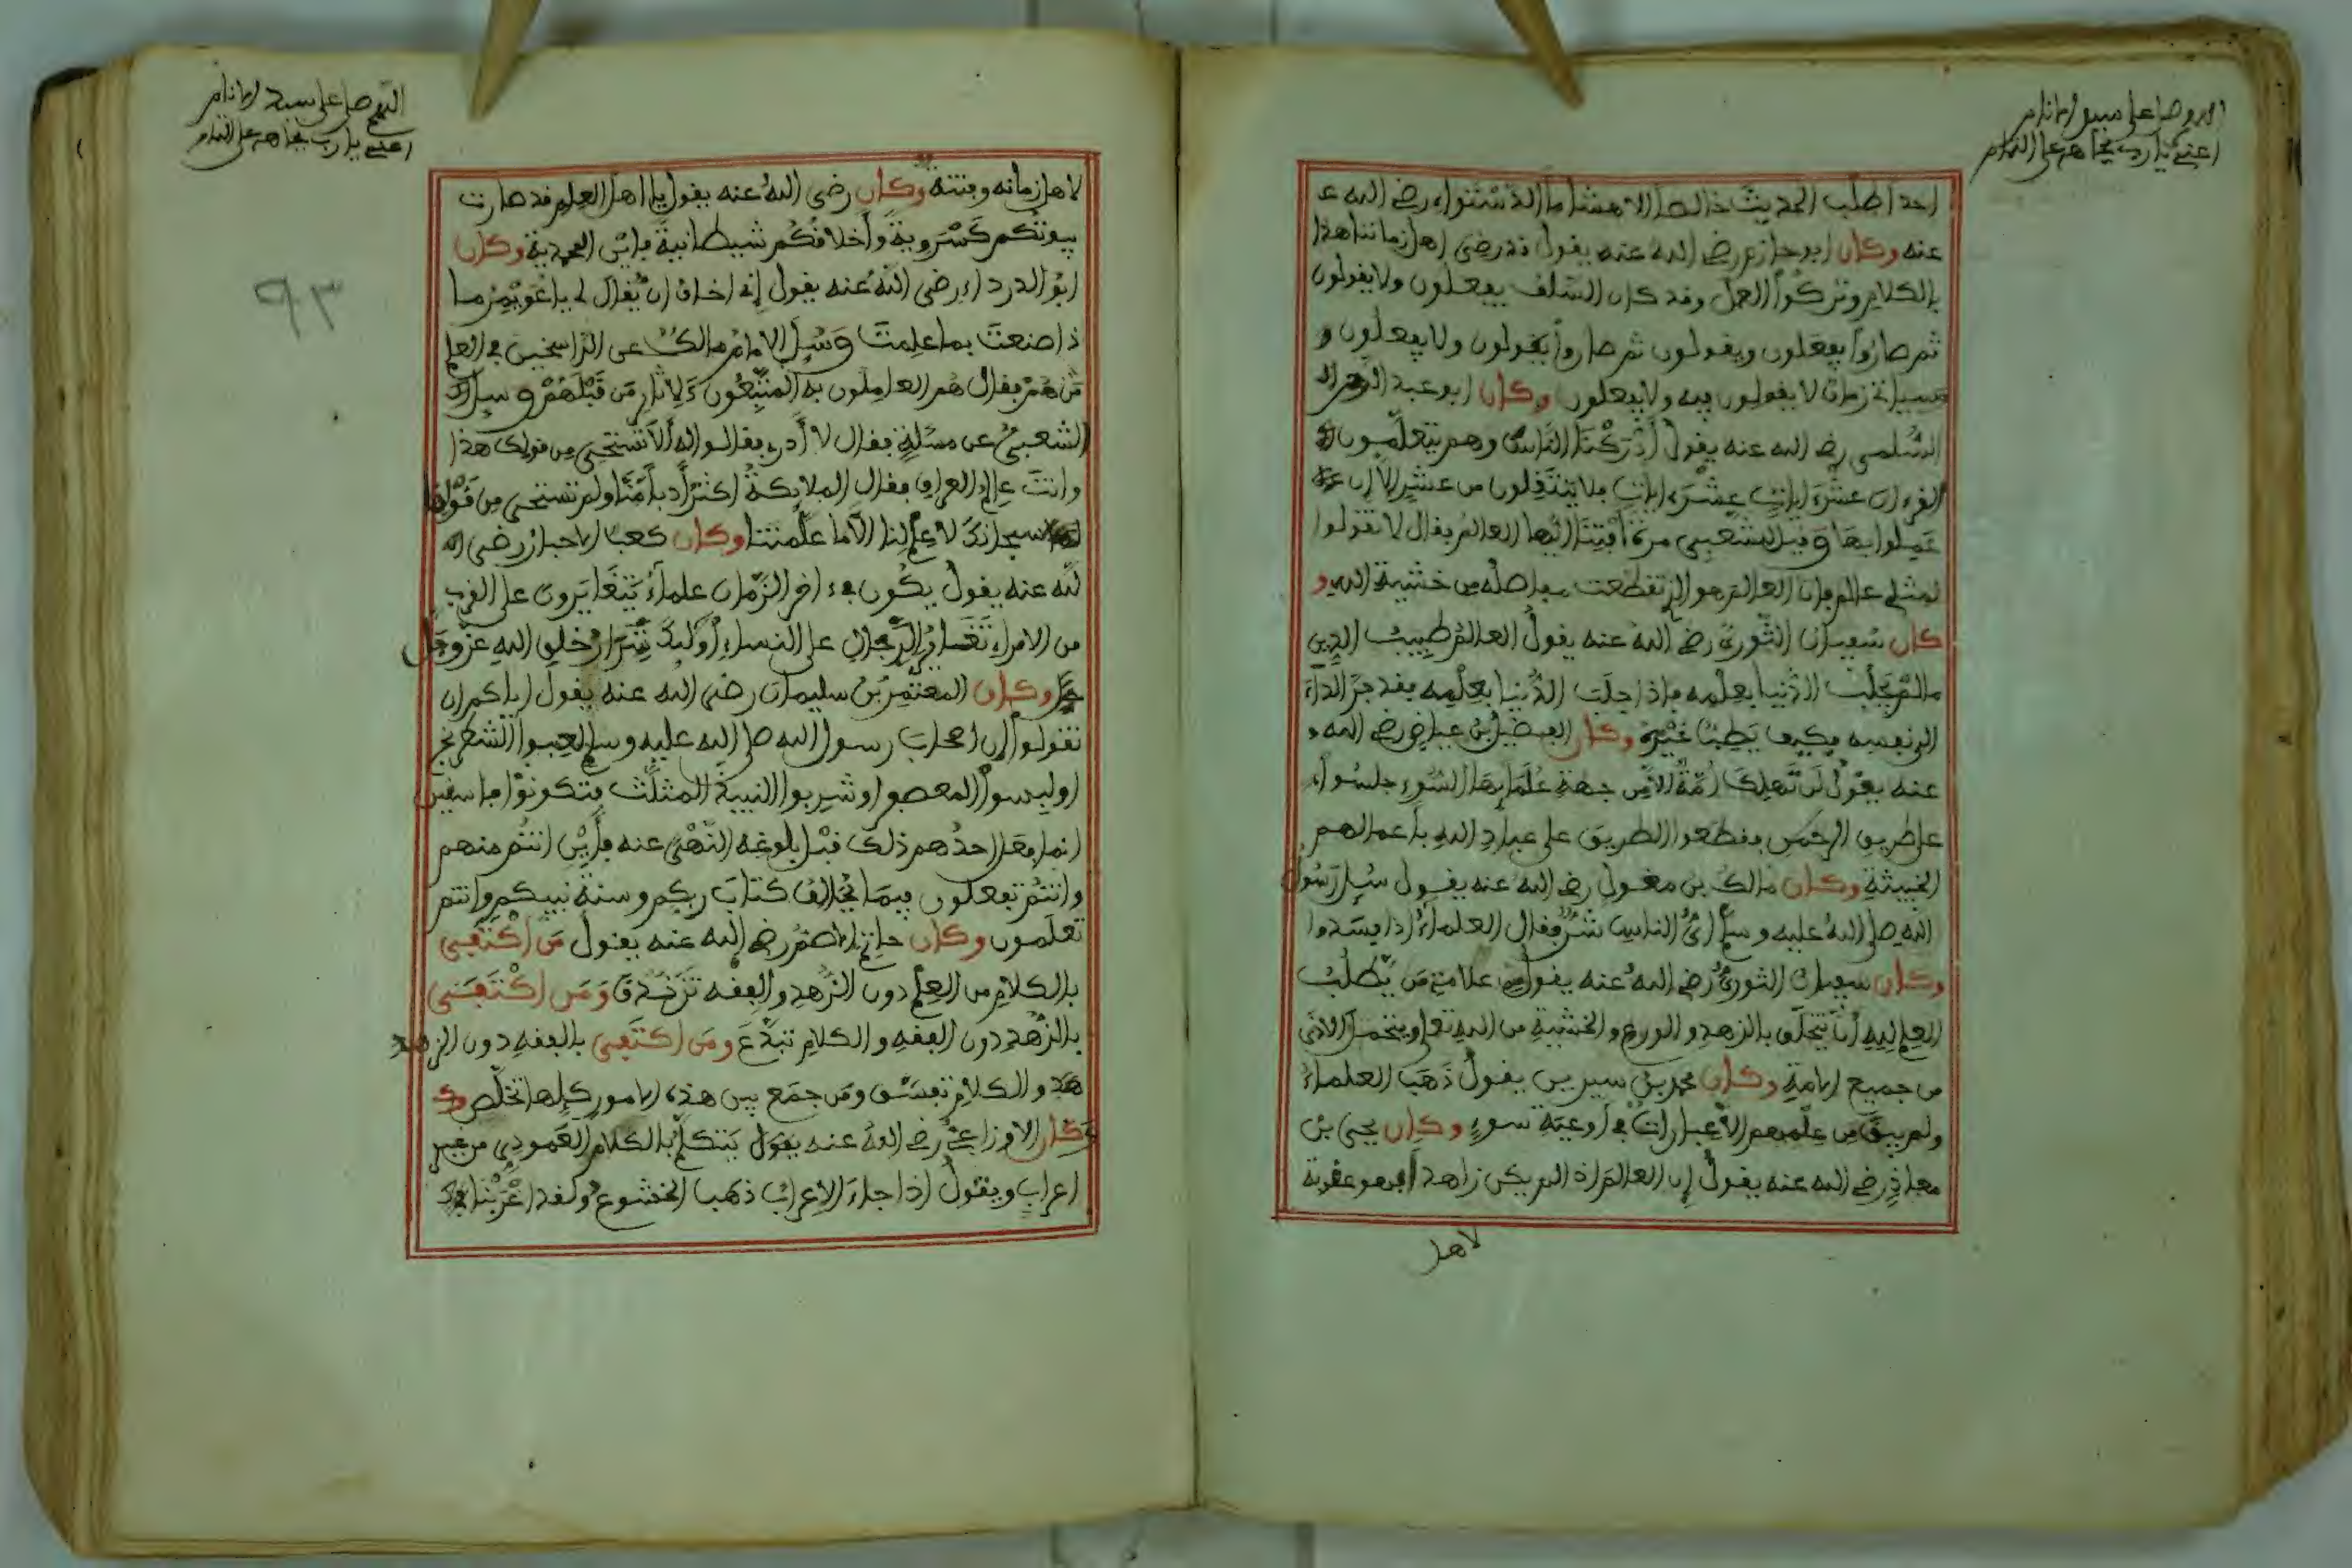 اللهم صل على سيد الانام
اعني يارب بجاهه على التمام
احدا طلب الحديث خالصا الا هشاما الدستواءي رضي الله ع
عنه وكان ابو حازم رضي الله عنه يقول قد رضي اهل زماننا هذا
بالكلام وتركوا العمل وقد كان السلف يفعلون ولا يقولون
ثم صاروا يفعلون ويقولون ثم صاروا يقولون ولا يفعلون و
سياتي زمان لا يقولون فيه ولا يفعلون وكان ابو عبد الرحمن
السلمي رضي الله عنه يقول أدركنا الناس وهم يتعلمون
القرءان عشر ايات عشر ايات فلا ينتقلون من عشر الا ان
عملوا بها وقيل للشعبي مرة أفتنا ايها العالم فقال لا تقولوا
لمثلي عالم فان العالم هو الذي تقطعت مفاصله من خشية الله و
كان سفيان الثوري رضي الله عنه يقول العالم طبيب الدين
مالم يجلب الدنيا بعلمه فاذا جلب الدنيا بعلمه فقد جر الداء
الى نفسه فكيف يطب غيره وكان الفضيل بن عياض رضي الله
عنه يقول لن تهلك أمة الا من جهة علمايها السوء جلسوا
على طريق الرحمن فقطعوا الطريق على عباد الله باعمالهم
الخبيثة وكان مالك بن مغول رضي الله عنه يقول سيل رسول
الله صلى الله عليه وسلم أي الناس شر فقال العلماء اذا فسدوا
وكان سفيان الثوري رضي الله عنه يقول من علامة من يطلب
العلم لله أن يتخلق بالزهد والورع والخشية من الله تعالى ويتحمل الاذى
من جميع الامة وكان محمد بن سيرين يقول ذهب العلماء
ولم يبق من علمهم الا غبارات في أوعية سوء وكان يحيى بن
معاذ رضي الله عنه يقول إن العالم اذا لم يكن زاهدا فهو عقوبة
لاهل
اللهم صل على سيد الانام
اعني يارب بجاهه على التمام
٩٣
لاهل زمانه وفتنة وكان رضي الله عنه يقول يا اهل العلم قد صارت
بيوتكم كسروية وأخلاقكم شيطانية فاين المحمدية وكان
ابو الدرداء رضي الله عنه يقول إني اخاف ان يقال لي يا عويمر ما
ذا صنعت بما علمت وسيل الامام مالك عن الراسخين في العلم
من هم فقال هم العاملون به المتبعون لاثار من قبلهم وسيل
الشعبي عن مسئلة فقال لا أدري فقالوا له ألا تستحيي من قولك هذا
وانت عالم العراق فقال الملايكة اكثر أدبا منا ولم تستحي من قولها
سبحانك لا علم لنا الا ما علمتنا وكان كعب الاحبار رضي الله
لله عنه يقول يكون في ءاخر الزمان علماء يتغايرون على القرب
من الامراء تغاير الرجال على النساء أوليك شرار خلق الله عز وجل
وكان المعتمر بن سليمان رضي الله عنه يقول اياكم ان
تقولوا إن اصحاب رسول الله صلى الله عليه وسلم لعبوا الشطرنج
او لبسوا المعصفر او شربوا النبيذ المثلث فتكونوا فاسقين
انما فعل احدهم ذلك قبل بلوغه النهي عنه فأين انتم منهم
وانتم تفعلون فيما يخالف كتاب ربكم وسنة نبيكم وانتم
تعلمون وكان حاتم الاصم رضي الله عنه يقول من اكتفى
بالكلام من العلم دون الزهد والفقه تزندق ومن اكتفى
بالزهد دون الفقه والكلام تبدع ومن اكتفى بالفقه دون الزهد
هد والكلام تفسق ومن جمع بين هذه الامور كلها تخلص و
وكان الاوزاعي رضي الله عنه يقول يتكلم بالكلام العمودي من غير
اعراب ويقول اذا جاء الاعراب ذهب الخشوع ولقد اعربنا